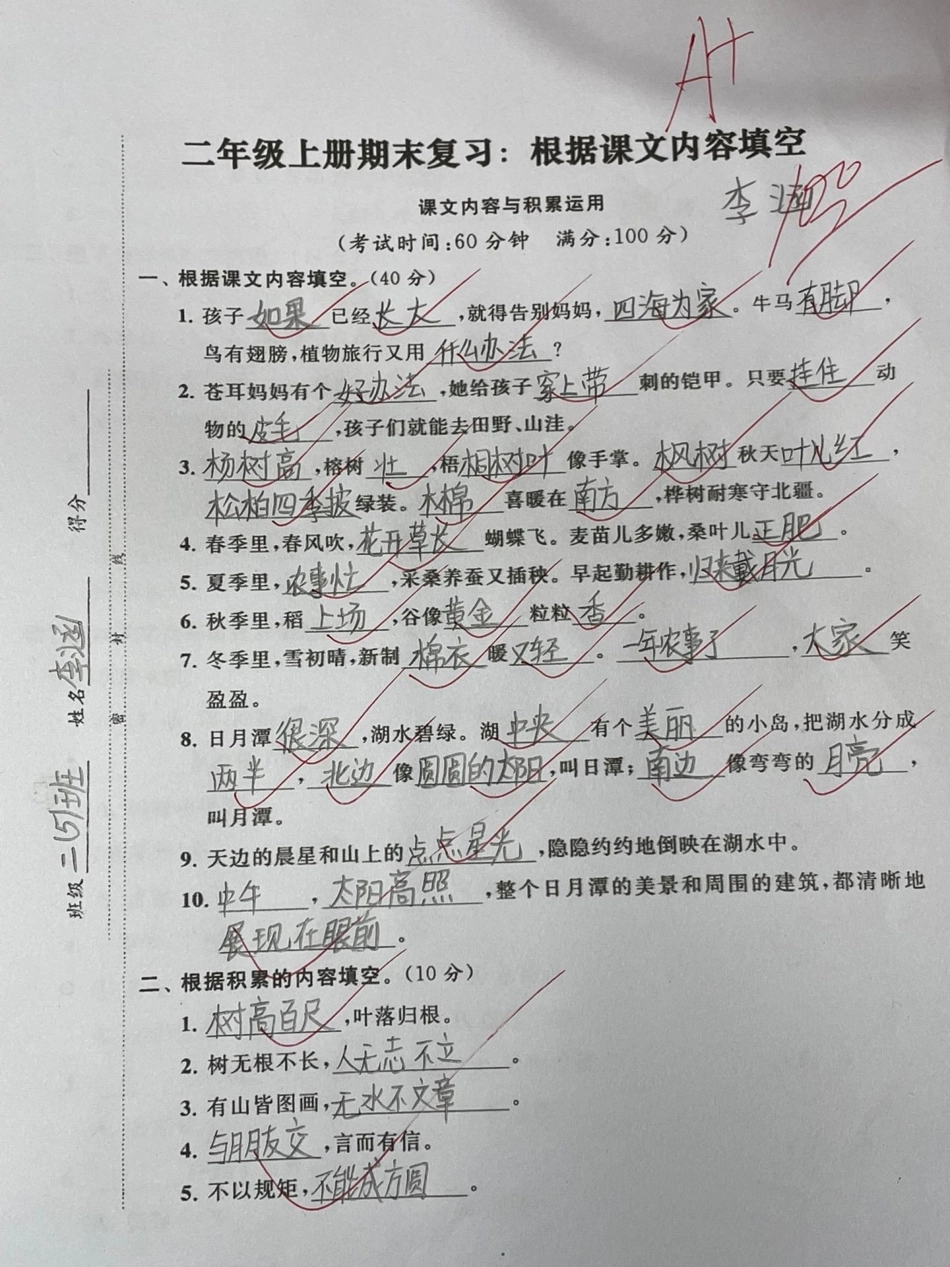 A+
二年级上册期末复习：根据课文内容填空
课文内容与积累运用
李涵
100
（考试时间：60分钟　满分：100分）
一、根据课文内容填空。（40分）
1. 孩子如果已经长大，就得告别妈妈，四海为家。牛马有脚，
鸟有翅膀，植物旅行又用什么办法？
2. 苍耳妈妈有个好办法，她给孩子穿上带刺的铠甲。只要挂住动
物的皮毛，孩子们就能去田野、山洼。
3. 杨树高，榕树壮，梧桐树叶像手掌。枫树秋天叶儿红，
松柏四季披绿装。木棉喜暖在南方，桦树耐寒守北疆。
4. 春季里，春风吹，花开草长蝴蝶飞。麦苗儿多嫩，桑叶儿正肥。
5. 夏季里，农事忙，采桑养蚕又插秧。早起勤耕作，归来戴月光。
6. 秋季里，稻上场，谷像黄金粒粒香。
7. 冬季里，雪初晴，新制棉衣暖又轻。一年农事了，大家笑
盈盈。
8. 日月潭很深，湖水碧绿。湖中央有个美丽的小岛，把湖水分成
两半，北边像圆圆的太阳，叫日潭；南边像弯弯的月亮，
叫月潭。
9. 天边的晨星和山上的点点星光，隐隐约约地倒映在湖水中。
10. 中午，太阳高照，整个日月潭的美景和周围的建筑，都清晰地
展现在眼前。
二、根据积累的内容填空。（10分）
1. 树高百尺，叶落归根。
2. 树无根不长，人无志不立。
3. 有山皆图画，无水不文章。
4. 与朋友交，言而有信。
5. 不以规矩，不能成方圆。
班级 二（5）班 姓名 李涵 得分
密 封 线